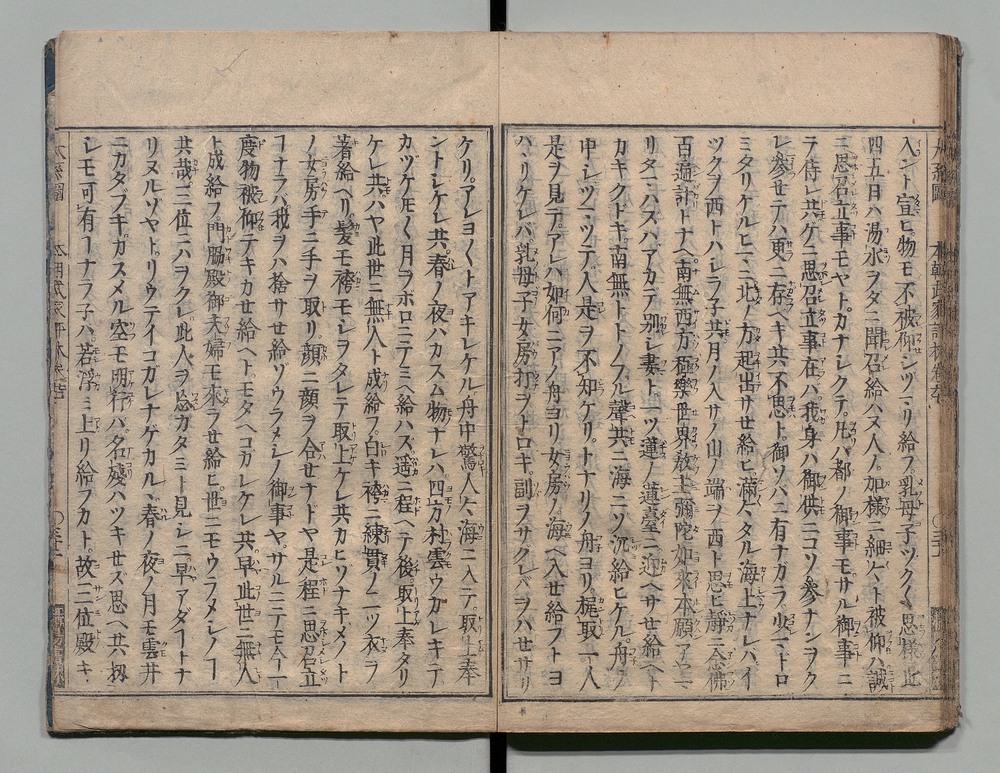 入ント宣ヒ物モ不被仰シツマリ給フ乳母子ツク〱思様此
四五日ハ湯水ヲタニ聞召給ハヌ人ノ加様ニ細〻ト被仰ハ誠
ニ思召立事モヤトカナシクテ凡ハ都ノ御事モサル御事ニ
ラ侍レ共ケニ思召立事在ハ我身ハ御供ニコソ参ナンヲク
レ参セテハ更ニ存ヘキ共不思ト御ソハニ有ナカラ少マトロ
ミタリケルヒマニ北ノ方起出サセ給ヒ滿〻タル海上ナレハイ
ツクヲ西トハシラ子共月ノ入サノ山ノ端ヲ西ト思ヒ靜ニ念佛
百遍計トナヘ南無西方極樂世界教主彌陀如來本願アマ
リタスハアカテ別レシ妻ト一ツ蓮ノ蓮臺ニ迎ヘサセ給ヘト
カキクトキ南無トトノフル聲共ニ海ニソ沉給ヒケル舟ノ
中シツマツテ人是ヲ不知ケリトナリノ舟ヨリ梶取一人
是ヲ見テアレハ如何ニアノ舟ヨリ女房ノ海ヘ入セ給フトヨ
ハリケレバ乳母子女房打ヲトロキ副ヲサクレバヲハセサリ
ケリアレヨ〱トアキレケル舟中驚人〻海ニ入テ取上奉
ントシケレ共春ノ夜ハカスム物ナレハ四方村雲ウカレキテ
カツケモ〱月ヲホロニテミヘ給ハス遥ニ程ヘテ後取上奉タリ
ケレ共ハヤ此世ニ無人ト成給フ白キ袴ニ練貫ノ二ツ衣ヲ
著給ヘリ髪モ袴モシヲタレテ取上ケレ共カヒソナキメノト
ノ女房手ニ手ヲ取リ顔ニ顔ヲ合セナドヤ是程ニ思召立
コナラバ我ヲハ捨サセ給ゾウラメシノ御事ヤサルニテモ今一
度物被仰テキカセ給ヘトモタヘコガレケレ共早此世ニ無人
ト成給フ門脇殿御夫婦モ來ラセ給ヒ世ニモウラメシノコ
共哉三位ニハヲクレ此人ヲ忩カタミト見シニ早アダートナ
リヌルソヤトリウテイコガレナゲカル春ノ夜ノ月モ雲井
ニカタブキガスメル空モ明行ハ名殘ハツキセズ思ヘ共扨
シモ可有コナラ子ハ若浮ミ上リ給フカト故三位殿キ